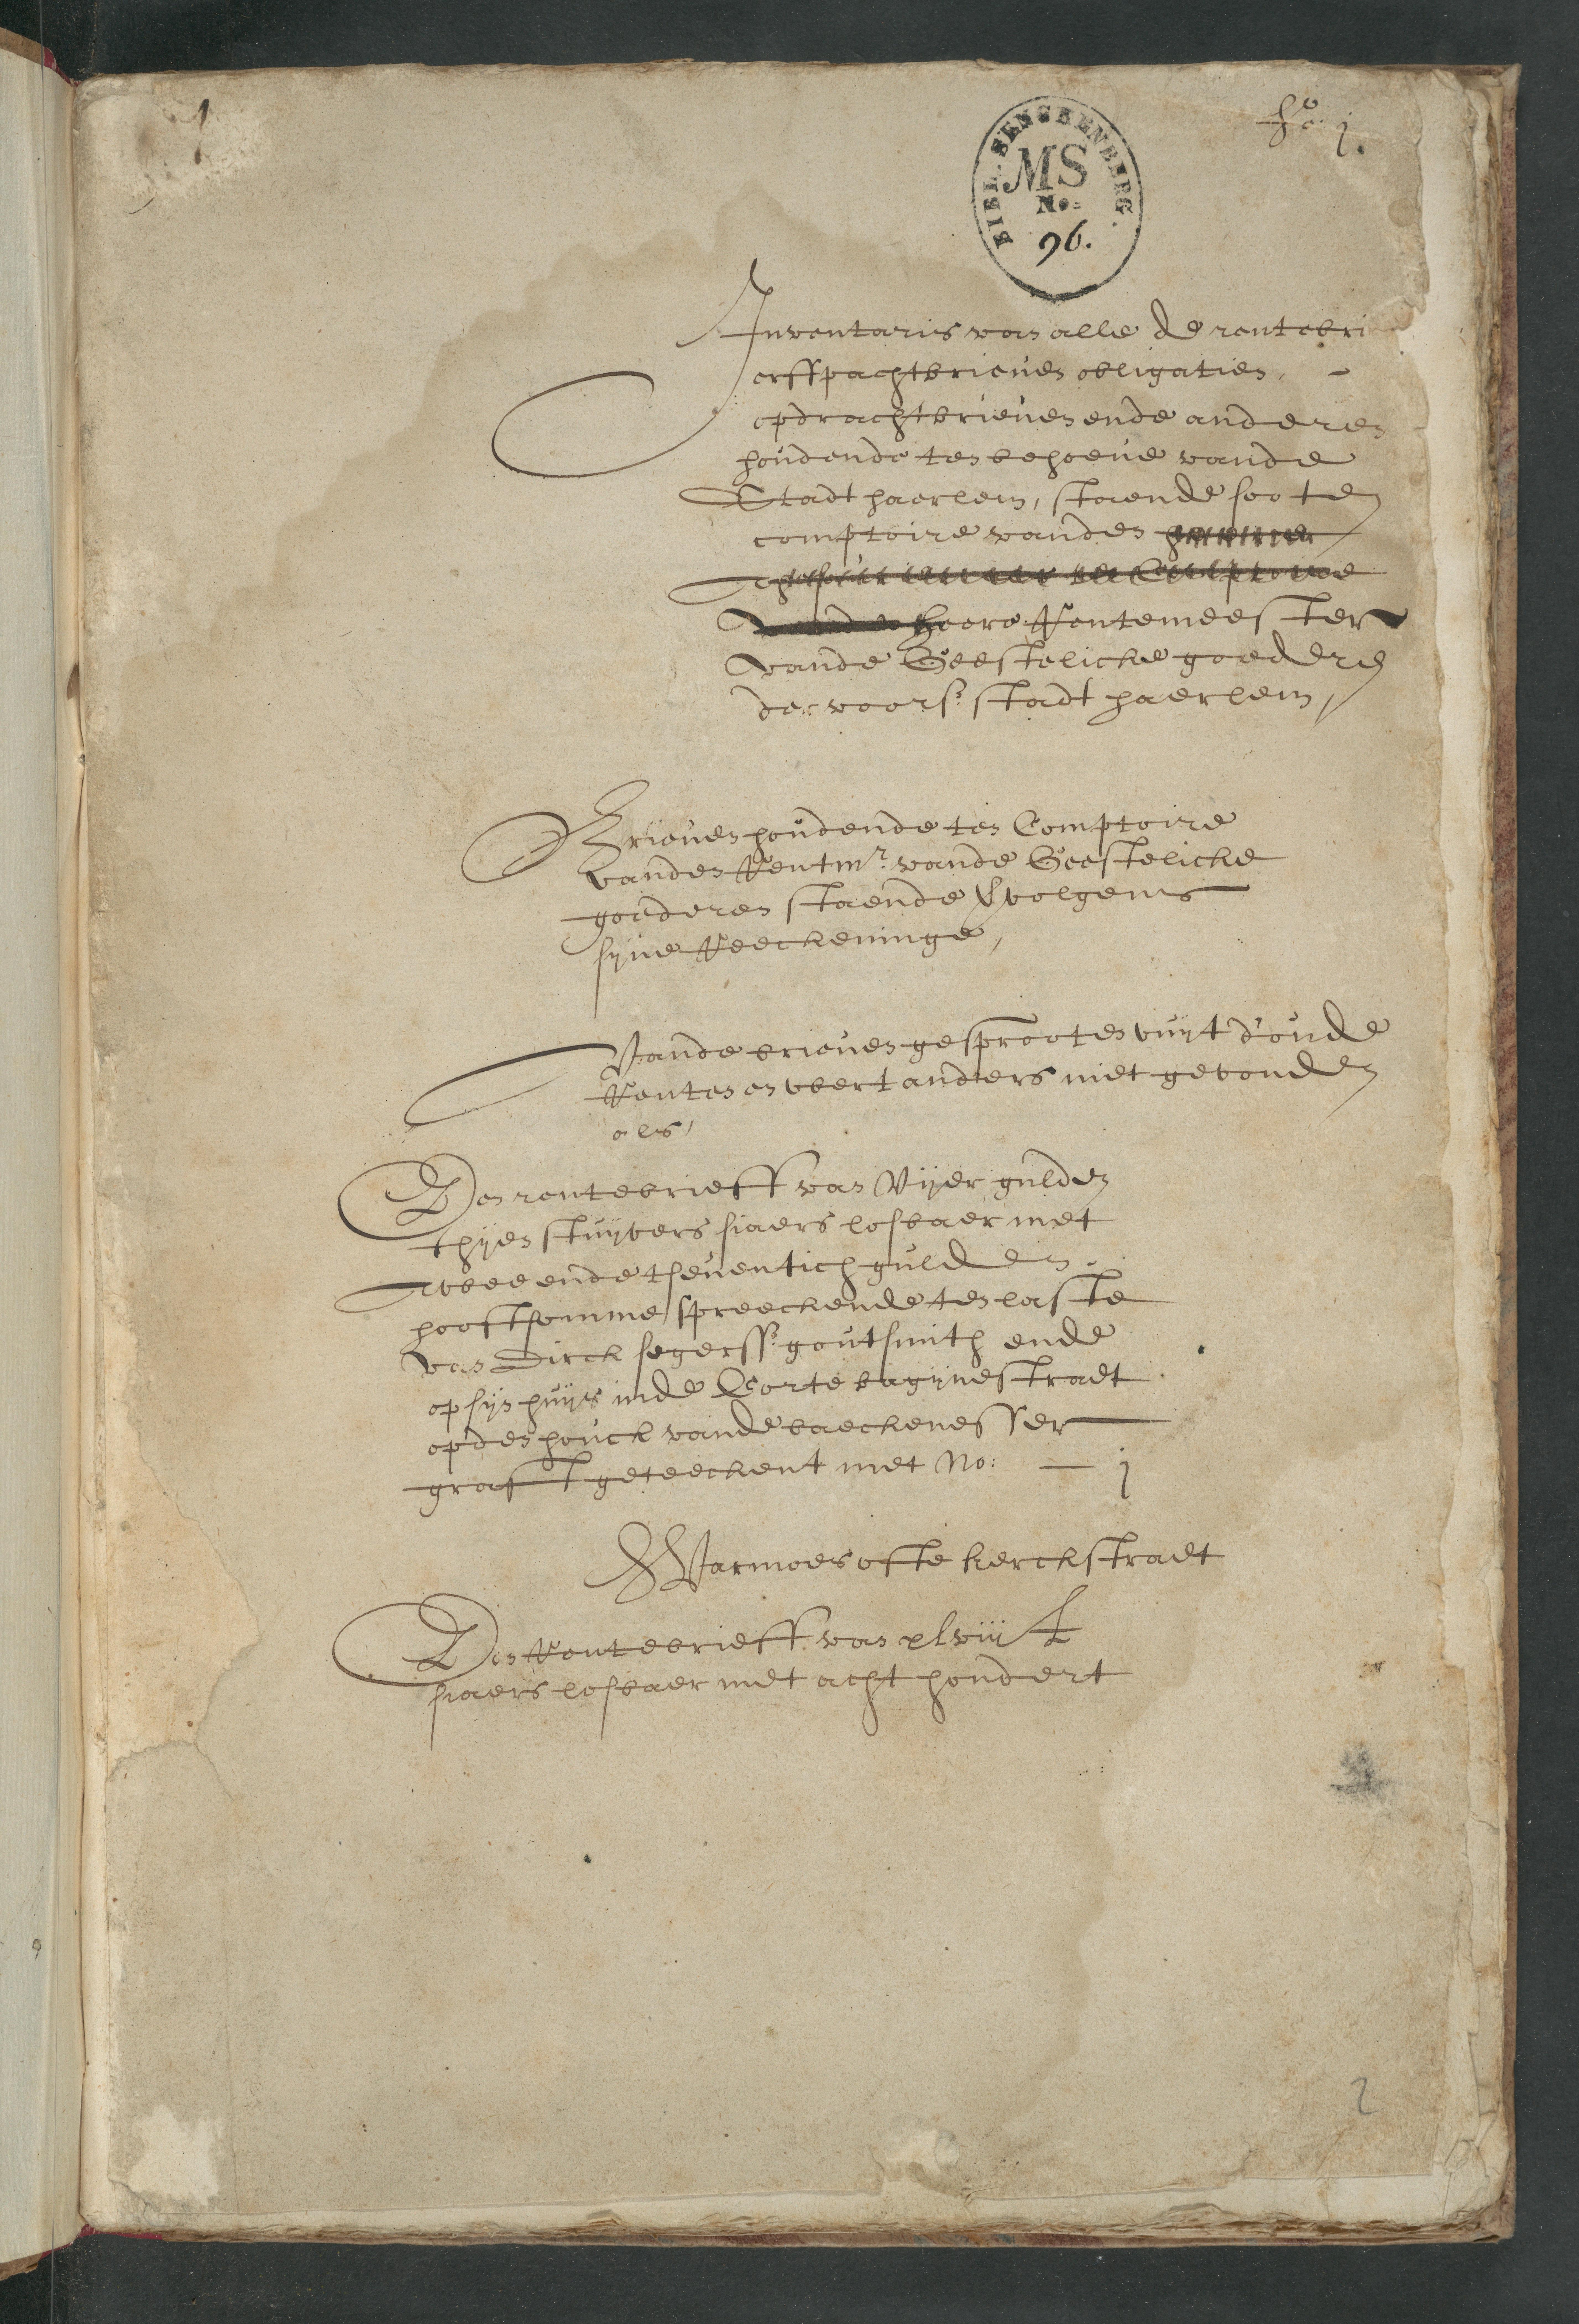 1
fo. j.
BIBL. SENCKENBERG.
MS
No.
96.
Inventaris van alle de rentebri
erffpachtbrieven obligatien,
opdrachtbrieven ende anderen
houdende ten behoeve vande
Stadt haerlem, staende soo ten
comptoire vanden
heere Rentemeester
vande Geestelicke goederen
der voors: stadt haerlem,
Brieven houdende ten Comptoire
vanden Rentmr. vande Geestelicke
goederen staende volgens
syne Reeckeninge,
Vande brieven gesprooten vuyt d'oude
Renten en wert anders niet gevonden
als,
Den rentebrieff van Vyer gulden
thyen stuyvers siaers losbaer met
twee ende tseventich gulden
hooftsomme spreeckende ten laste
van Dirck segerss: goutsmith ende
op syn huys inde Corte bagynestraet
op den houck vande baeckenesser
graft geteeckent met No: — j
Warmoes ofte kerckstraet
Den Rentebrieff van xlviij £
siaers losbaer met acht hondert
2